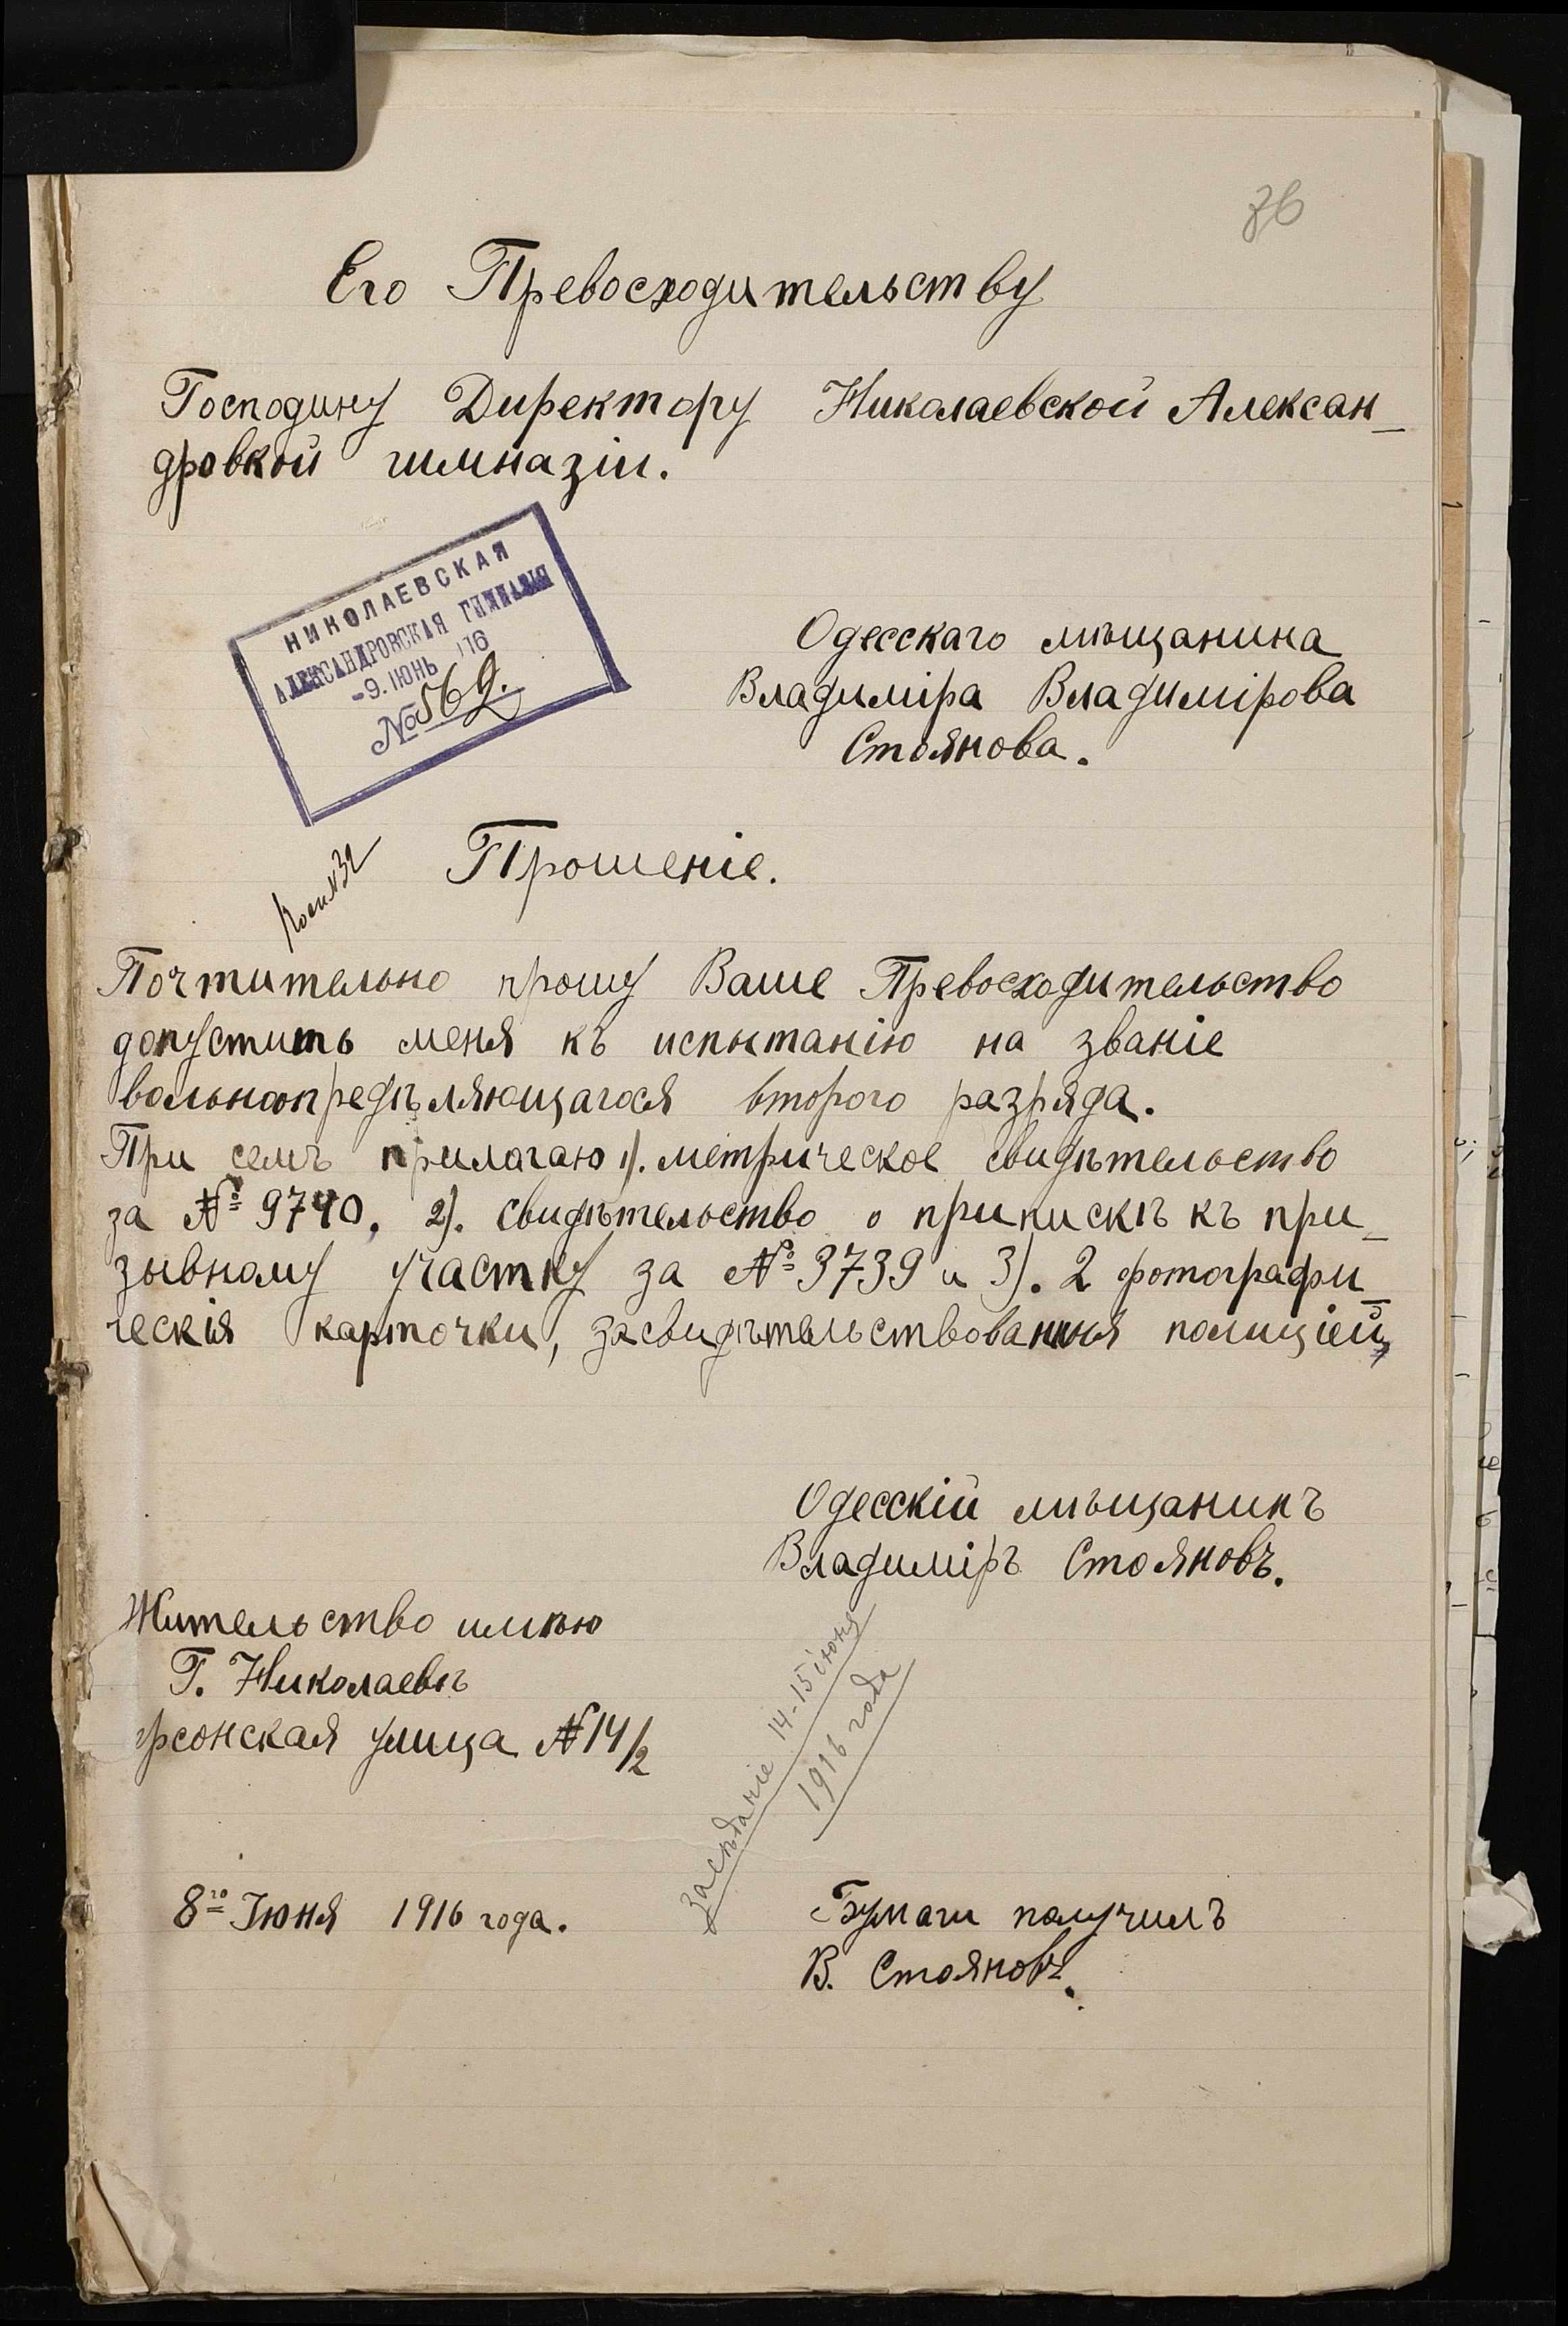 36
Его Превосходительству
Господину Директору Николаевской Алексан-
дровкой гимназіи.
НИКОЛАЕВСКАЯ
АЛЕКСАНДРОВСКАЯ ГИМНАЗІЯ
-9. ІЮНЬ 16
№ 569.
Одесскаго мѣщанина
Владиміра Владимірова
Стоянова.
Прошеніе.
Почтительно прошу Ваше Превосходительство
допустить меня къ испытанію на званіе
вольноопредѣляющагося второго разряда.
При семъ прилагаю 1). метрическое свидѣтельство
за № 9740, 2). свидѣтельство о припискѣ къ при-
зывному участку за № 3739 и 3). 2 фотографи-
ческія карточки, засвидѣтельствованныя полиціей
Одесскій мѣщанинъ
Владиміръ Стояновъ.
Жительство имѣю
Г. Николаевѣ
рсонская улица № 14/2
засѣданіе 14-15 іюня
1916 года
8го Іюня 1916 года.
Бумаги получилъ
В. Стояновъ.